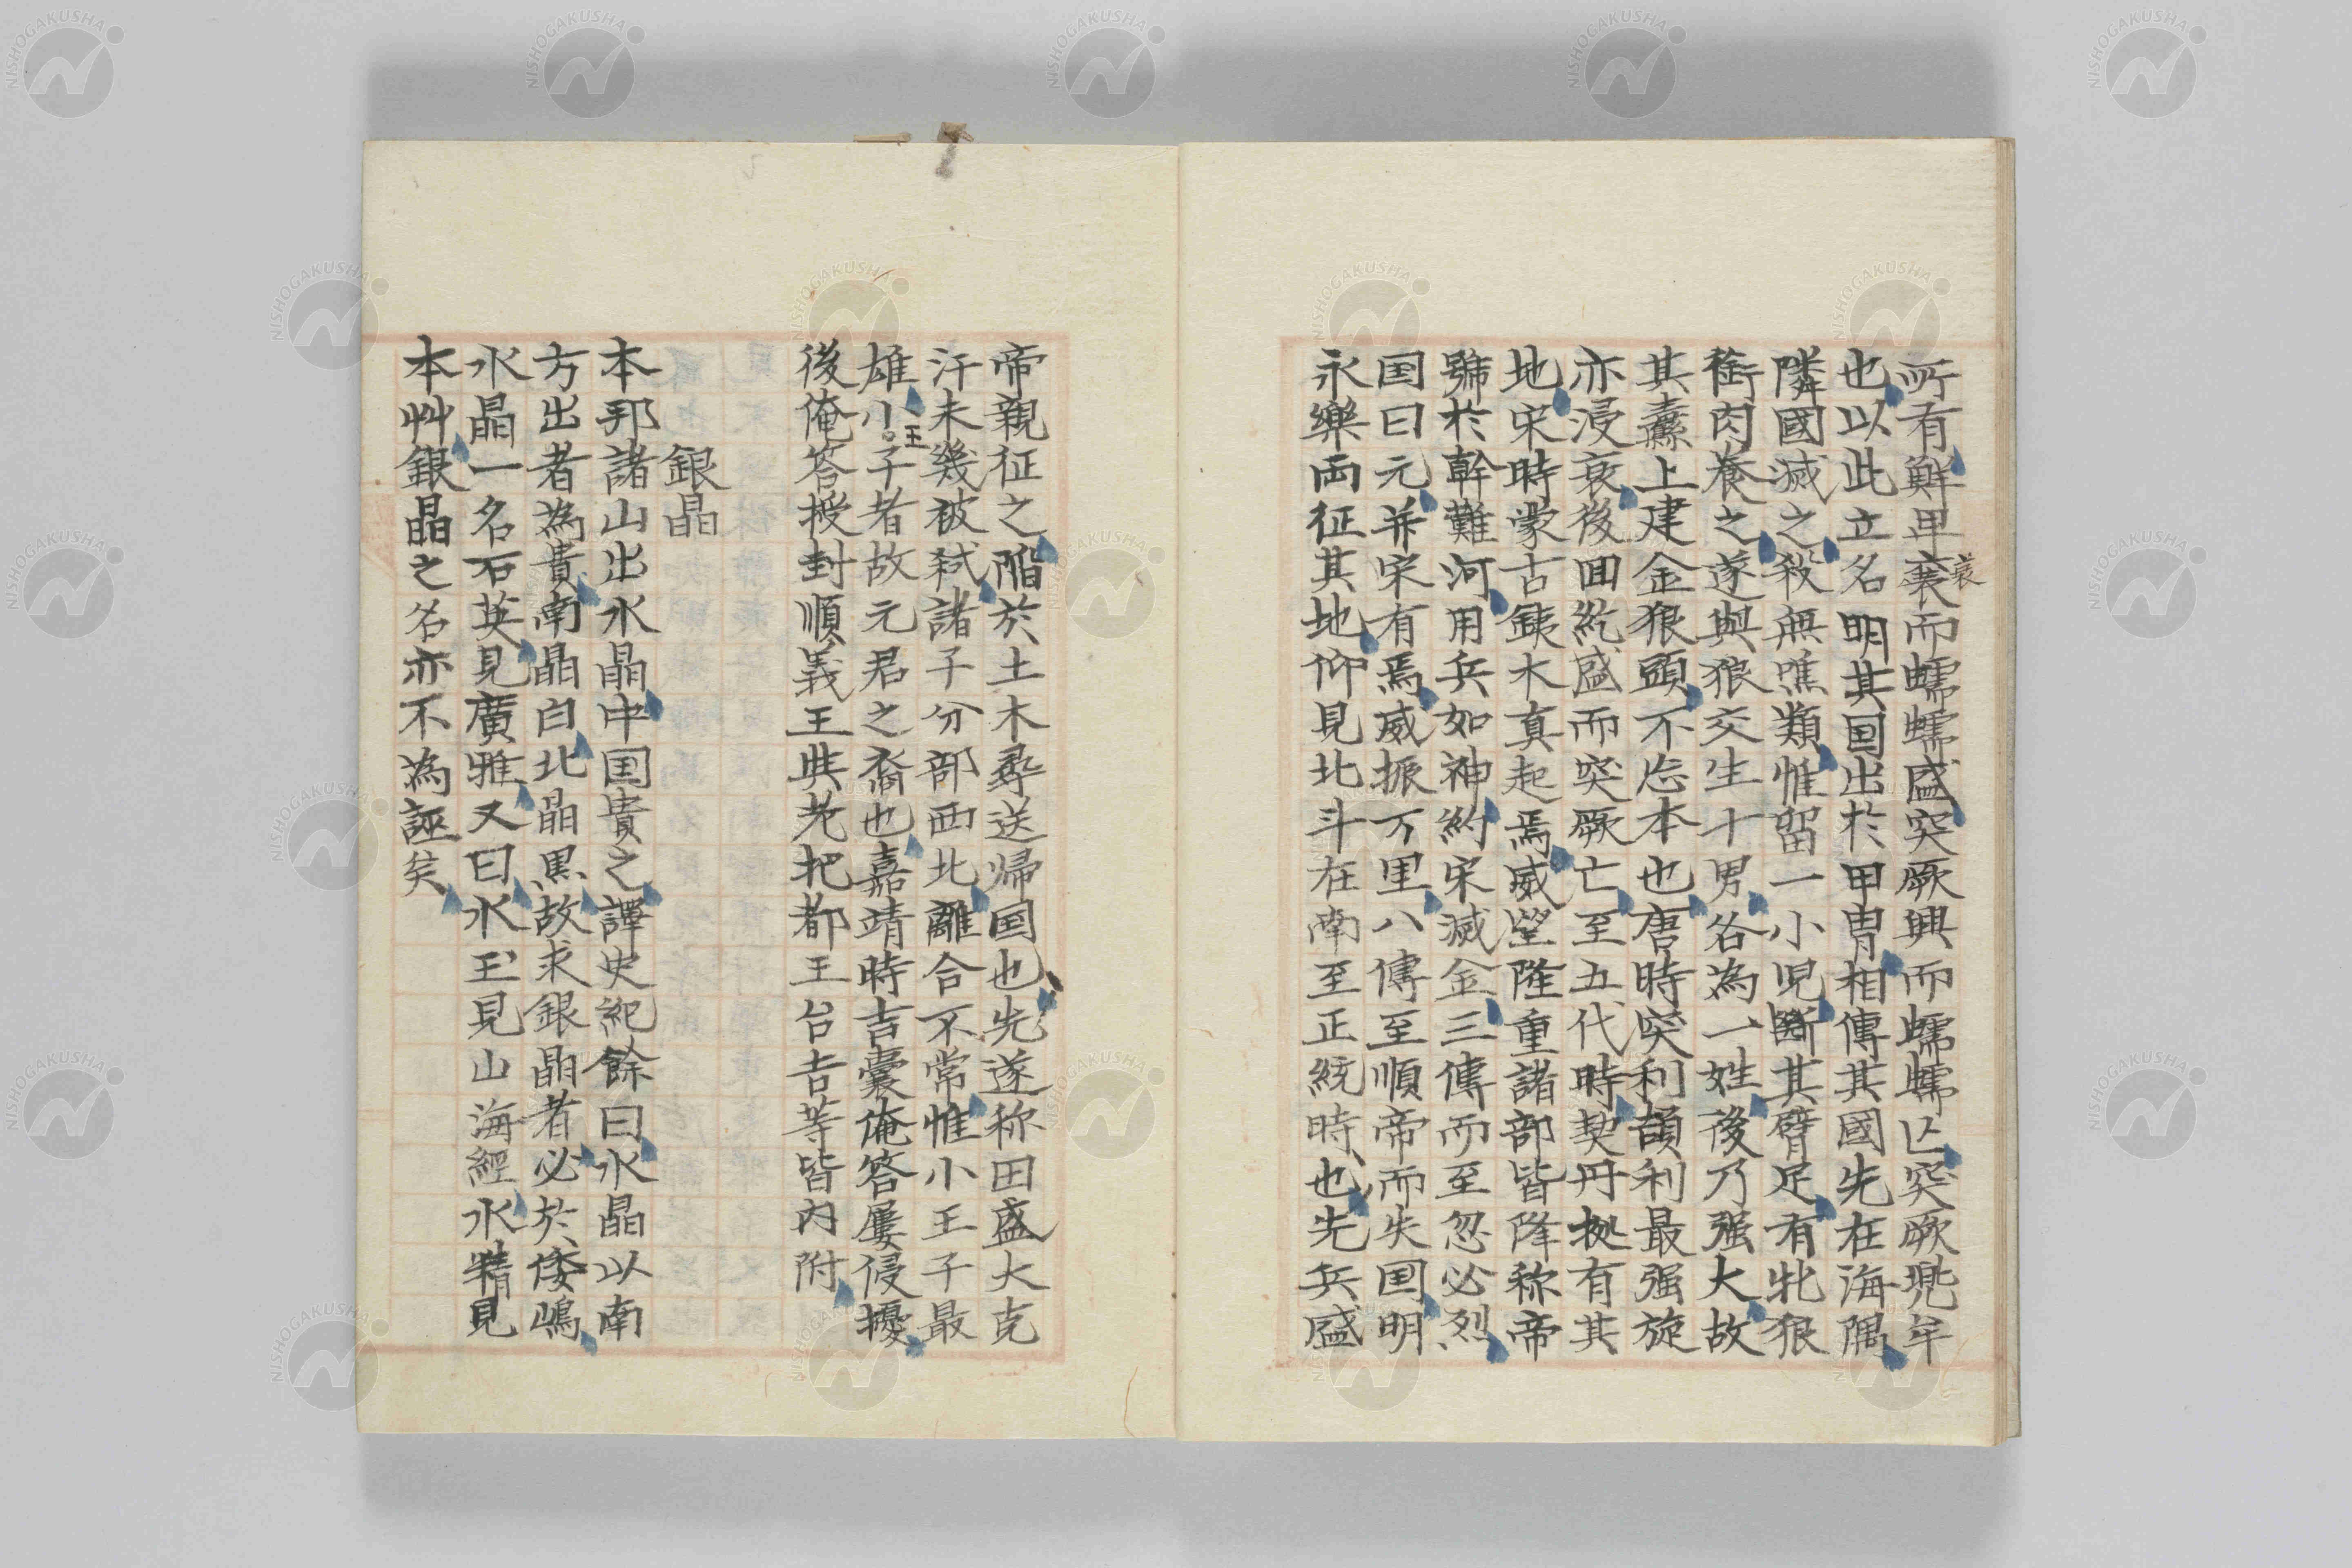 所有鮮卑衰而蠕蠕盛突厥興而蠕蠕亾突厥兠牟
衰
也以此立名明其国出於甲冑相傳其國先在海隅
隣國滅之殺無噍類惟留一小児斷其臂足有牝狼
銜肉養之遂與狼交生十男各為一姓後乃强大故
其纛上建金狼頭不忘本也唐時突利頡利最强旋
亦浸衰後囬紇盛而突厥亡至五代時契丹拠有其
地宋時蒙古銕木真起焉威望隆重諸部皆降称帝
號於幹難河用兵如神約宋滅金三傳而至忽必烈
国曰元并宋有焉威振万里八傳至順帝而失国明
永樂両征其地仰見北斗在南至正統時也先兵盛
帝親征之陷於土木尋送帰国也先遂称田盛大克
汗未幾被弑諸子分部西北離合不常惟小王子最
雄小王子者故元君之裔也嘉靖時吉囊俺答屢侵擾
後俺答授封順義王與老把都王台吉等皆内附
銀晶
本邦諸山出水晶中国貴之譯史紀餘曰水晶以南
方出者為貴南晶白北晶黒故求銀晶者必於倭嶋
水晶一名石英見廣雅又曰水玉見山海經水精見
本艸銀晶之名亦不為誣矣
NISHOGAKUSHA